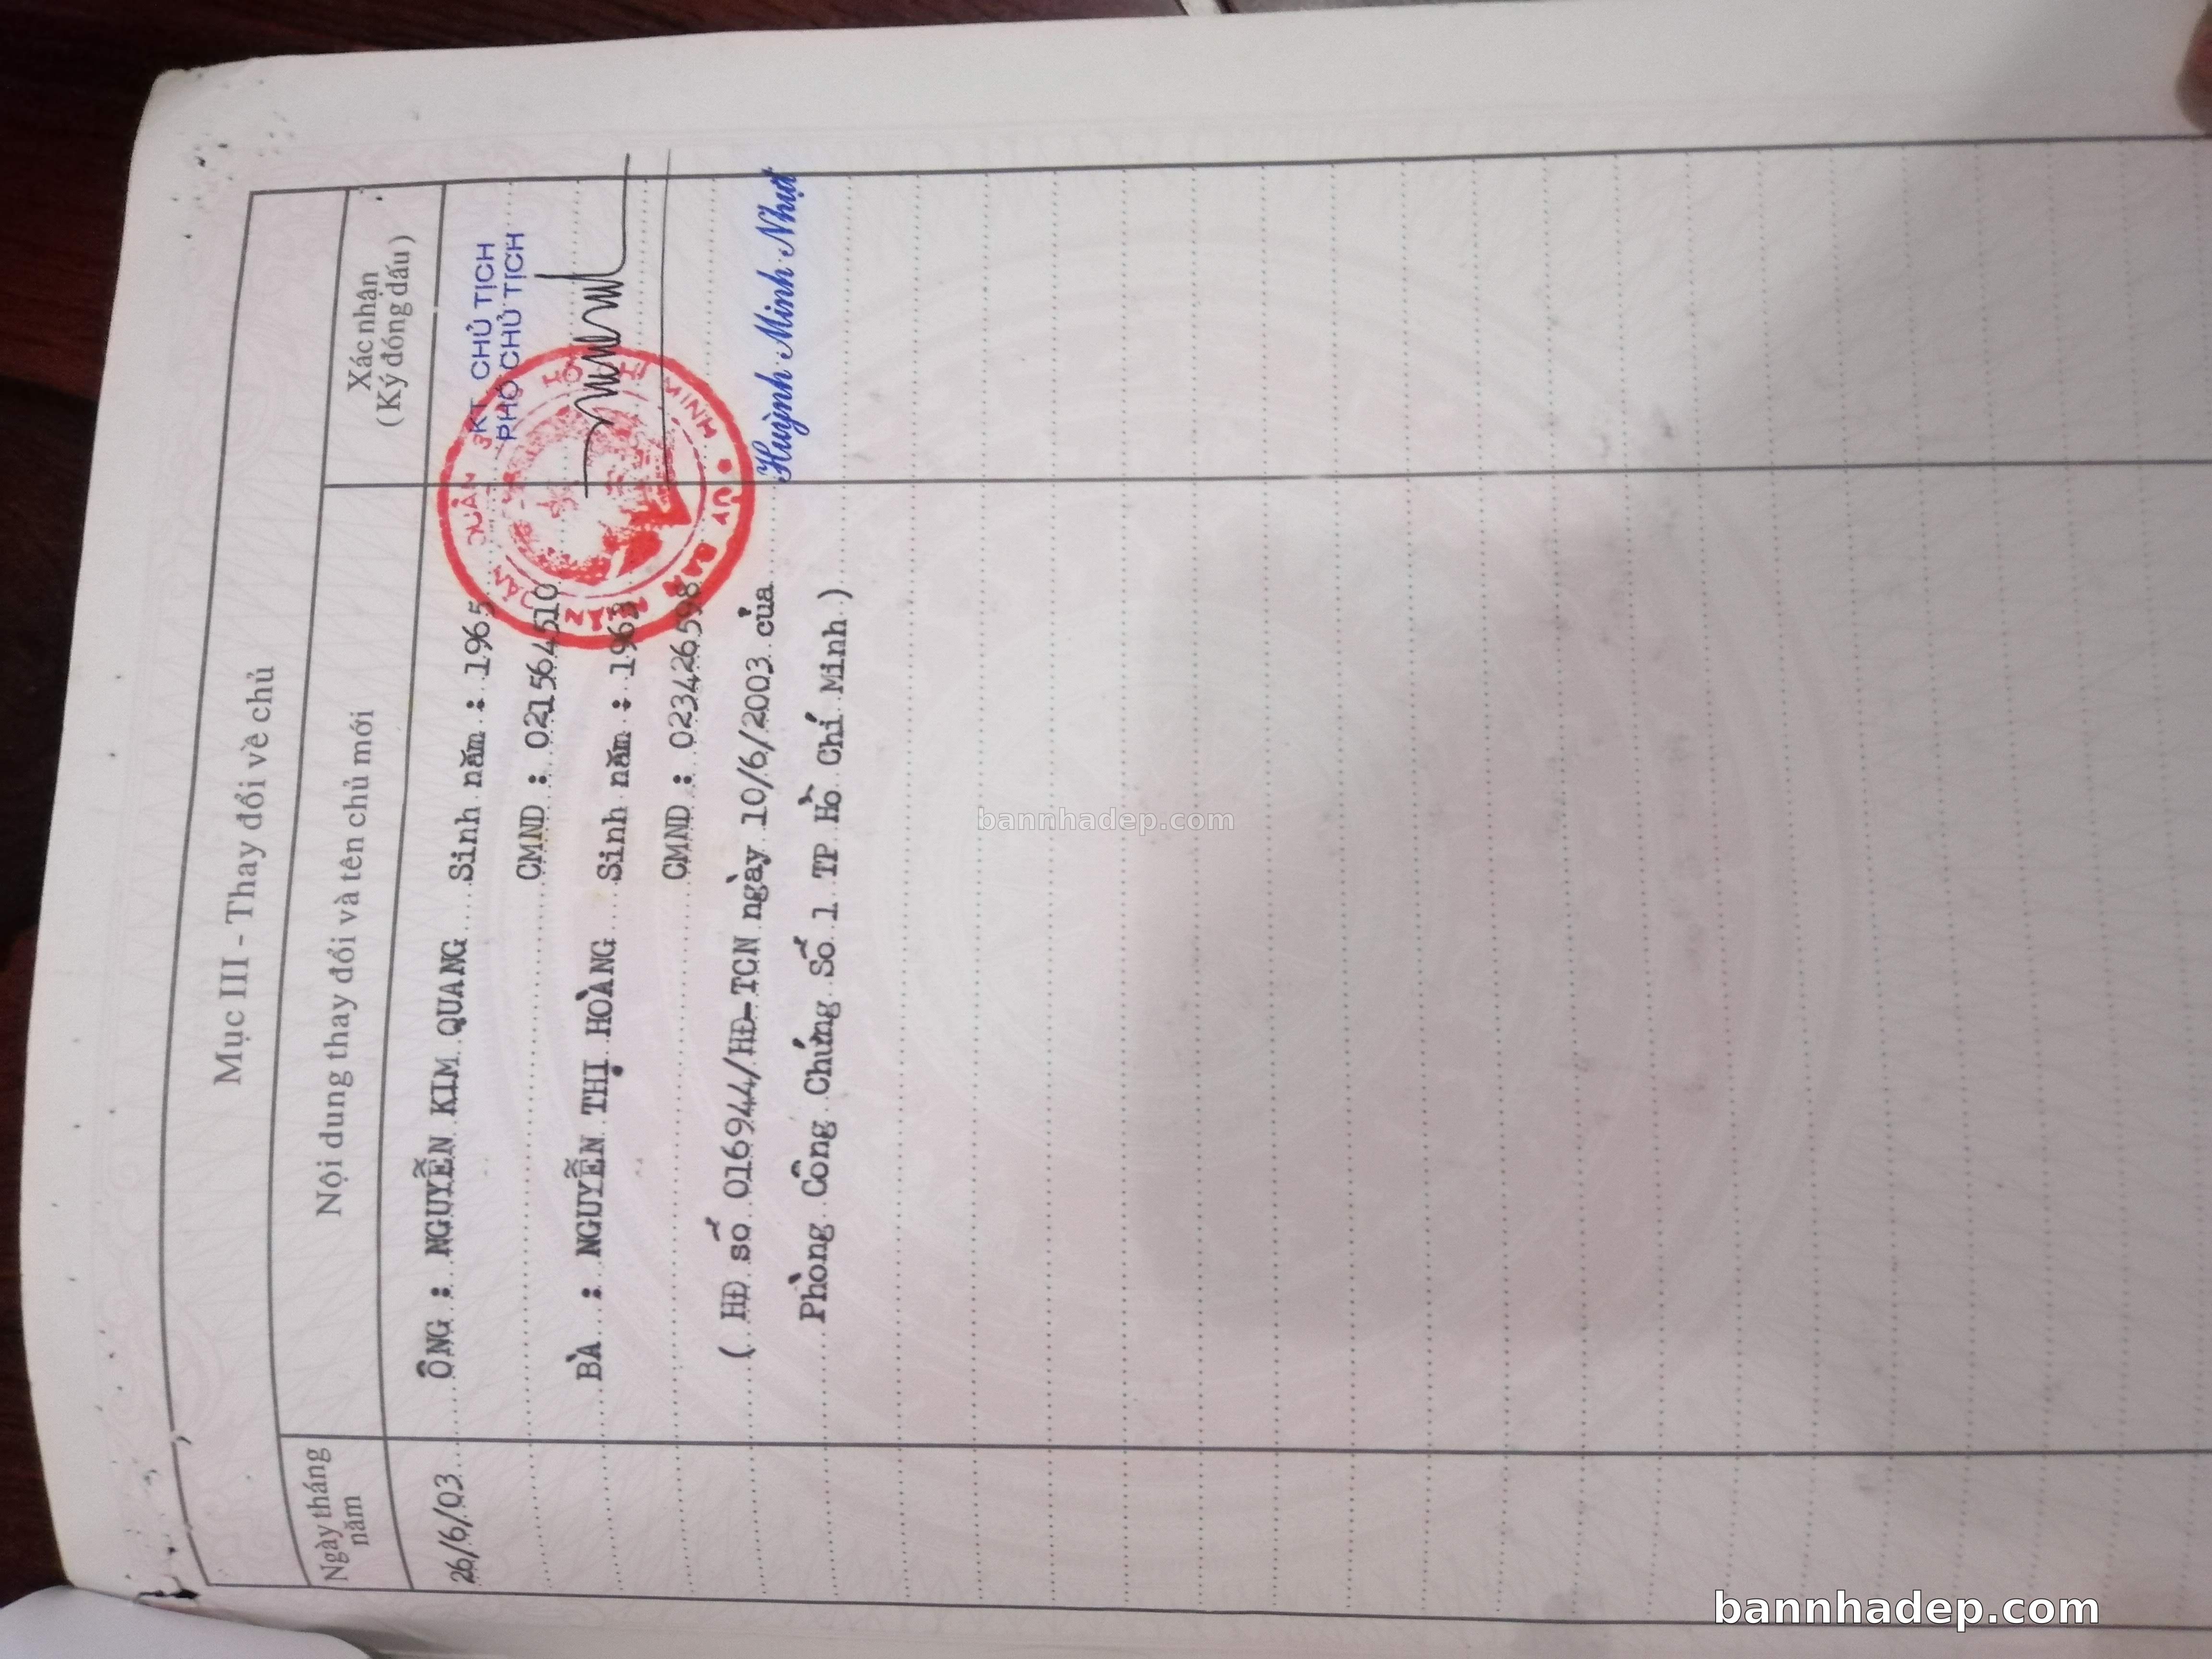 Mục III - Thay đổi về chủ
Ngày tháng năm
Nội dung thay đổi và tên chủ mới
Xác nhận
(Ký đóng dấu)
26/6/03
ÔNG : NGUYỄN KIM QUANG Sinh năm : 1965
CMND : 021564510
BÀ : NGUYỄN THỊ HOÀNG Sinh năm : 1963
CMND : 023426598
( HĐ số 016944/HĐ-TCN ngày 10/6/2003 của
Phòng Công Chứng Số 1 TP Hồ Chí Minh )
KT CHỦ TỊCH
PHÓ CHỦ TỊCH
ỦY BAN NHÂN DÂN QUẬN 3 HỒ CHÍ MINH
Huỳnh Minh Nhựt
bannhadep.com
bannhadep.com